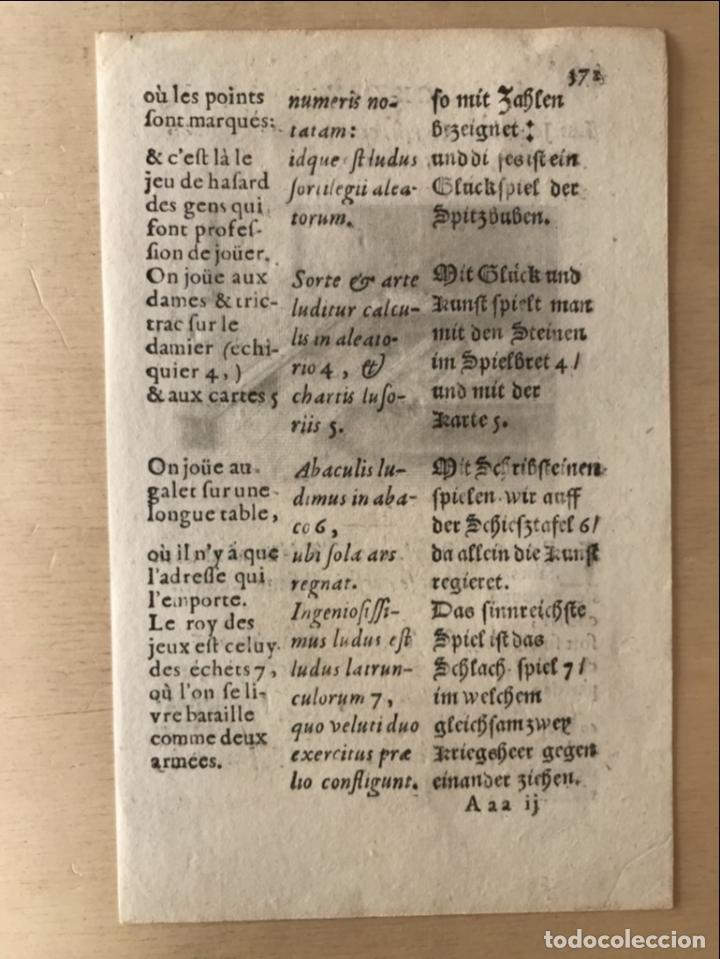 371
où les points
ſont marqués:
& c'eſt là le
jeu de haſard
des gens qui
font profeſ-
ſion de joüer.
On joüe aux
dames & tric-
trac ſur le
damier (echi-
quier 4,)
& aux cartes 5
On joüe au
galet ſur une
longue table,
où il n'y á que
l'adreſſe qui
l'emporte.
Le roy des
jeux eſt celuy
des échets 7,
où l'on ſe li-
vre bataille
comme deux
armées.
numeris no-
tatam:
idque ſt ludus
ſortilegii alea-
torum.
Sorte & arte
luditur calcu-
lis in aleato-
rio 4, &
chartis luſo-
riis 5.
Abaculis lu-
dimus in aba-
co 6,
ubi ſola ars
regnat.
Ingenioſiſſi-
mus ludus eſt
ludus latrun-
culorum 7,
quo veluti duo
exercitus præ
lio confligunt.
ſo mit Zahlen
bezeignet:
und di ſes iſt ein
Gluckſpiel der
Spitzbuben.
Mit Glück und
Kunſt ſpielt man
mit den Steinen
im Spielbret 4/
und mit der
Karte 5.
Mit Schribſteinen
ſpielen wir auff
der Schieſztafel 6/
da allein die Kunſt
regieret.
Das ſinnreichſte
Spiel iſt das
Schlach ſpiel 7/
im welchem
gleichſam zwey
Kriegsheer gegen
einander ziehen.
Aaa ij
todocoleccion